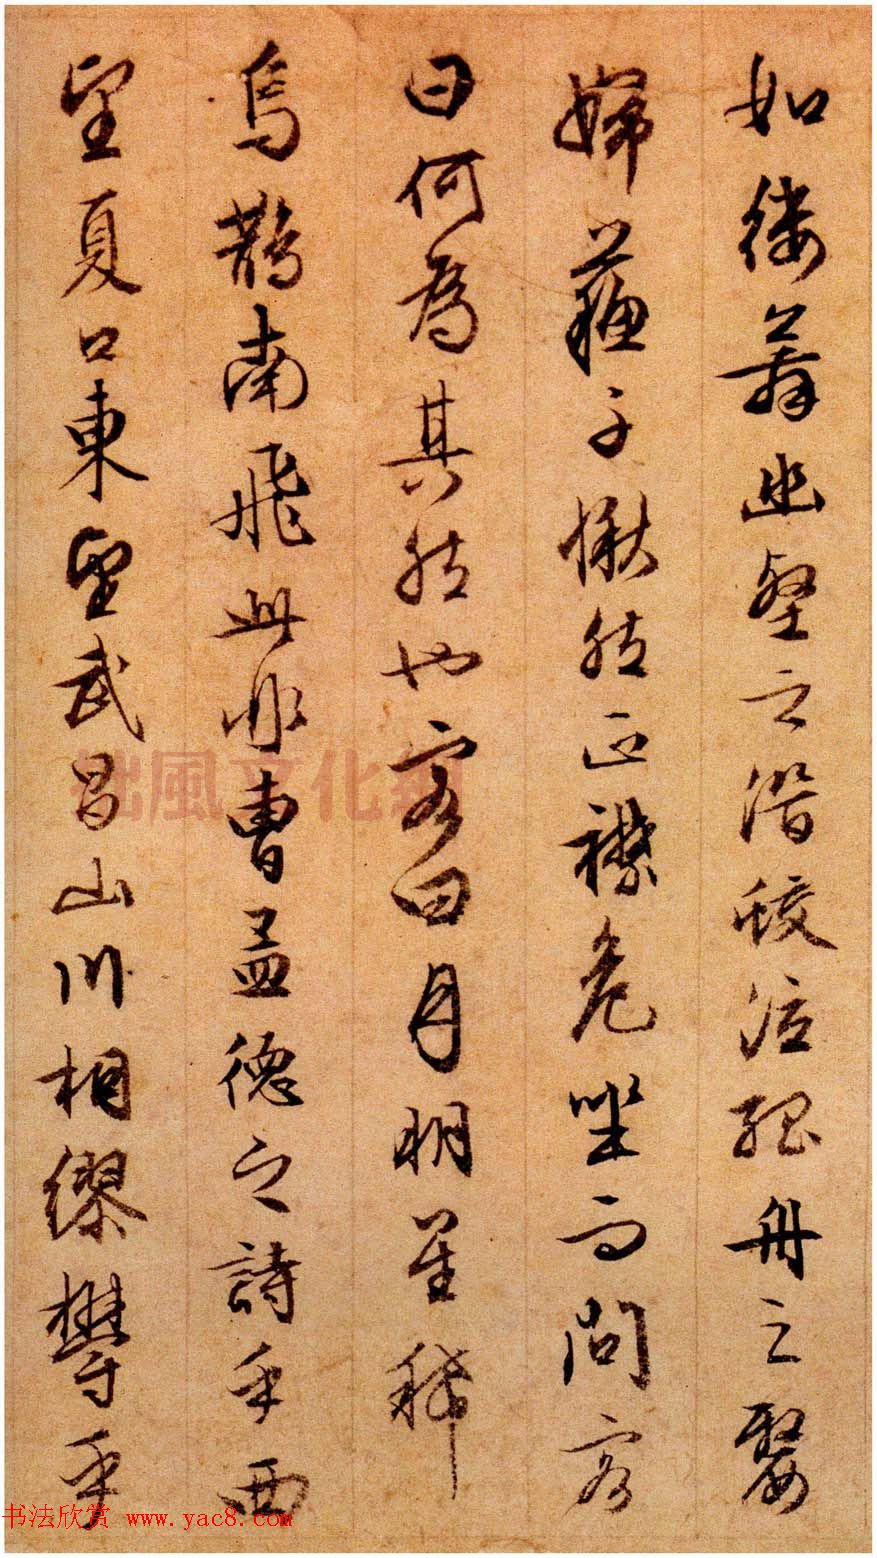 如縷舞幽壑之潛蛟泣孤舟之嫠
婦蘇子愀然正襟危坐而問客
曰何為其然也客曰月明星稀
烏鵲南飛此非曹孟德之詩乎西
望夏口東望武昌山川相繆鬱乎
拙風文化網
书法欣赏 www.yac8.com